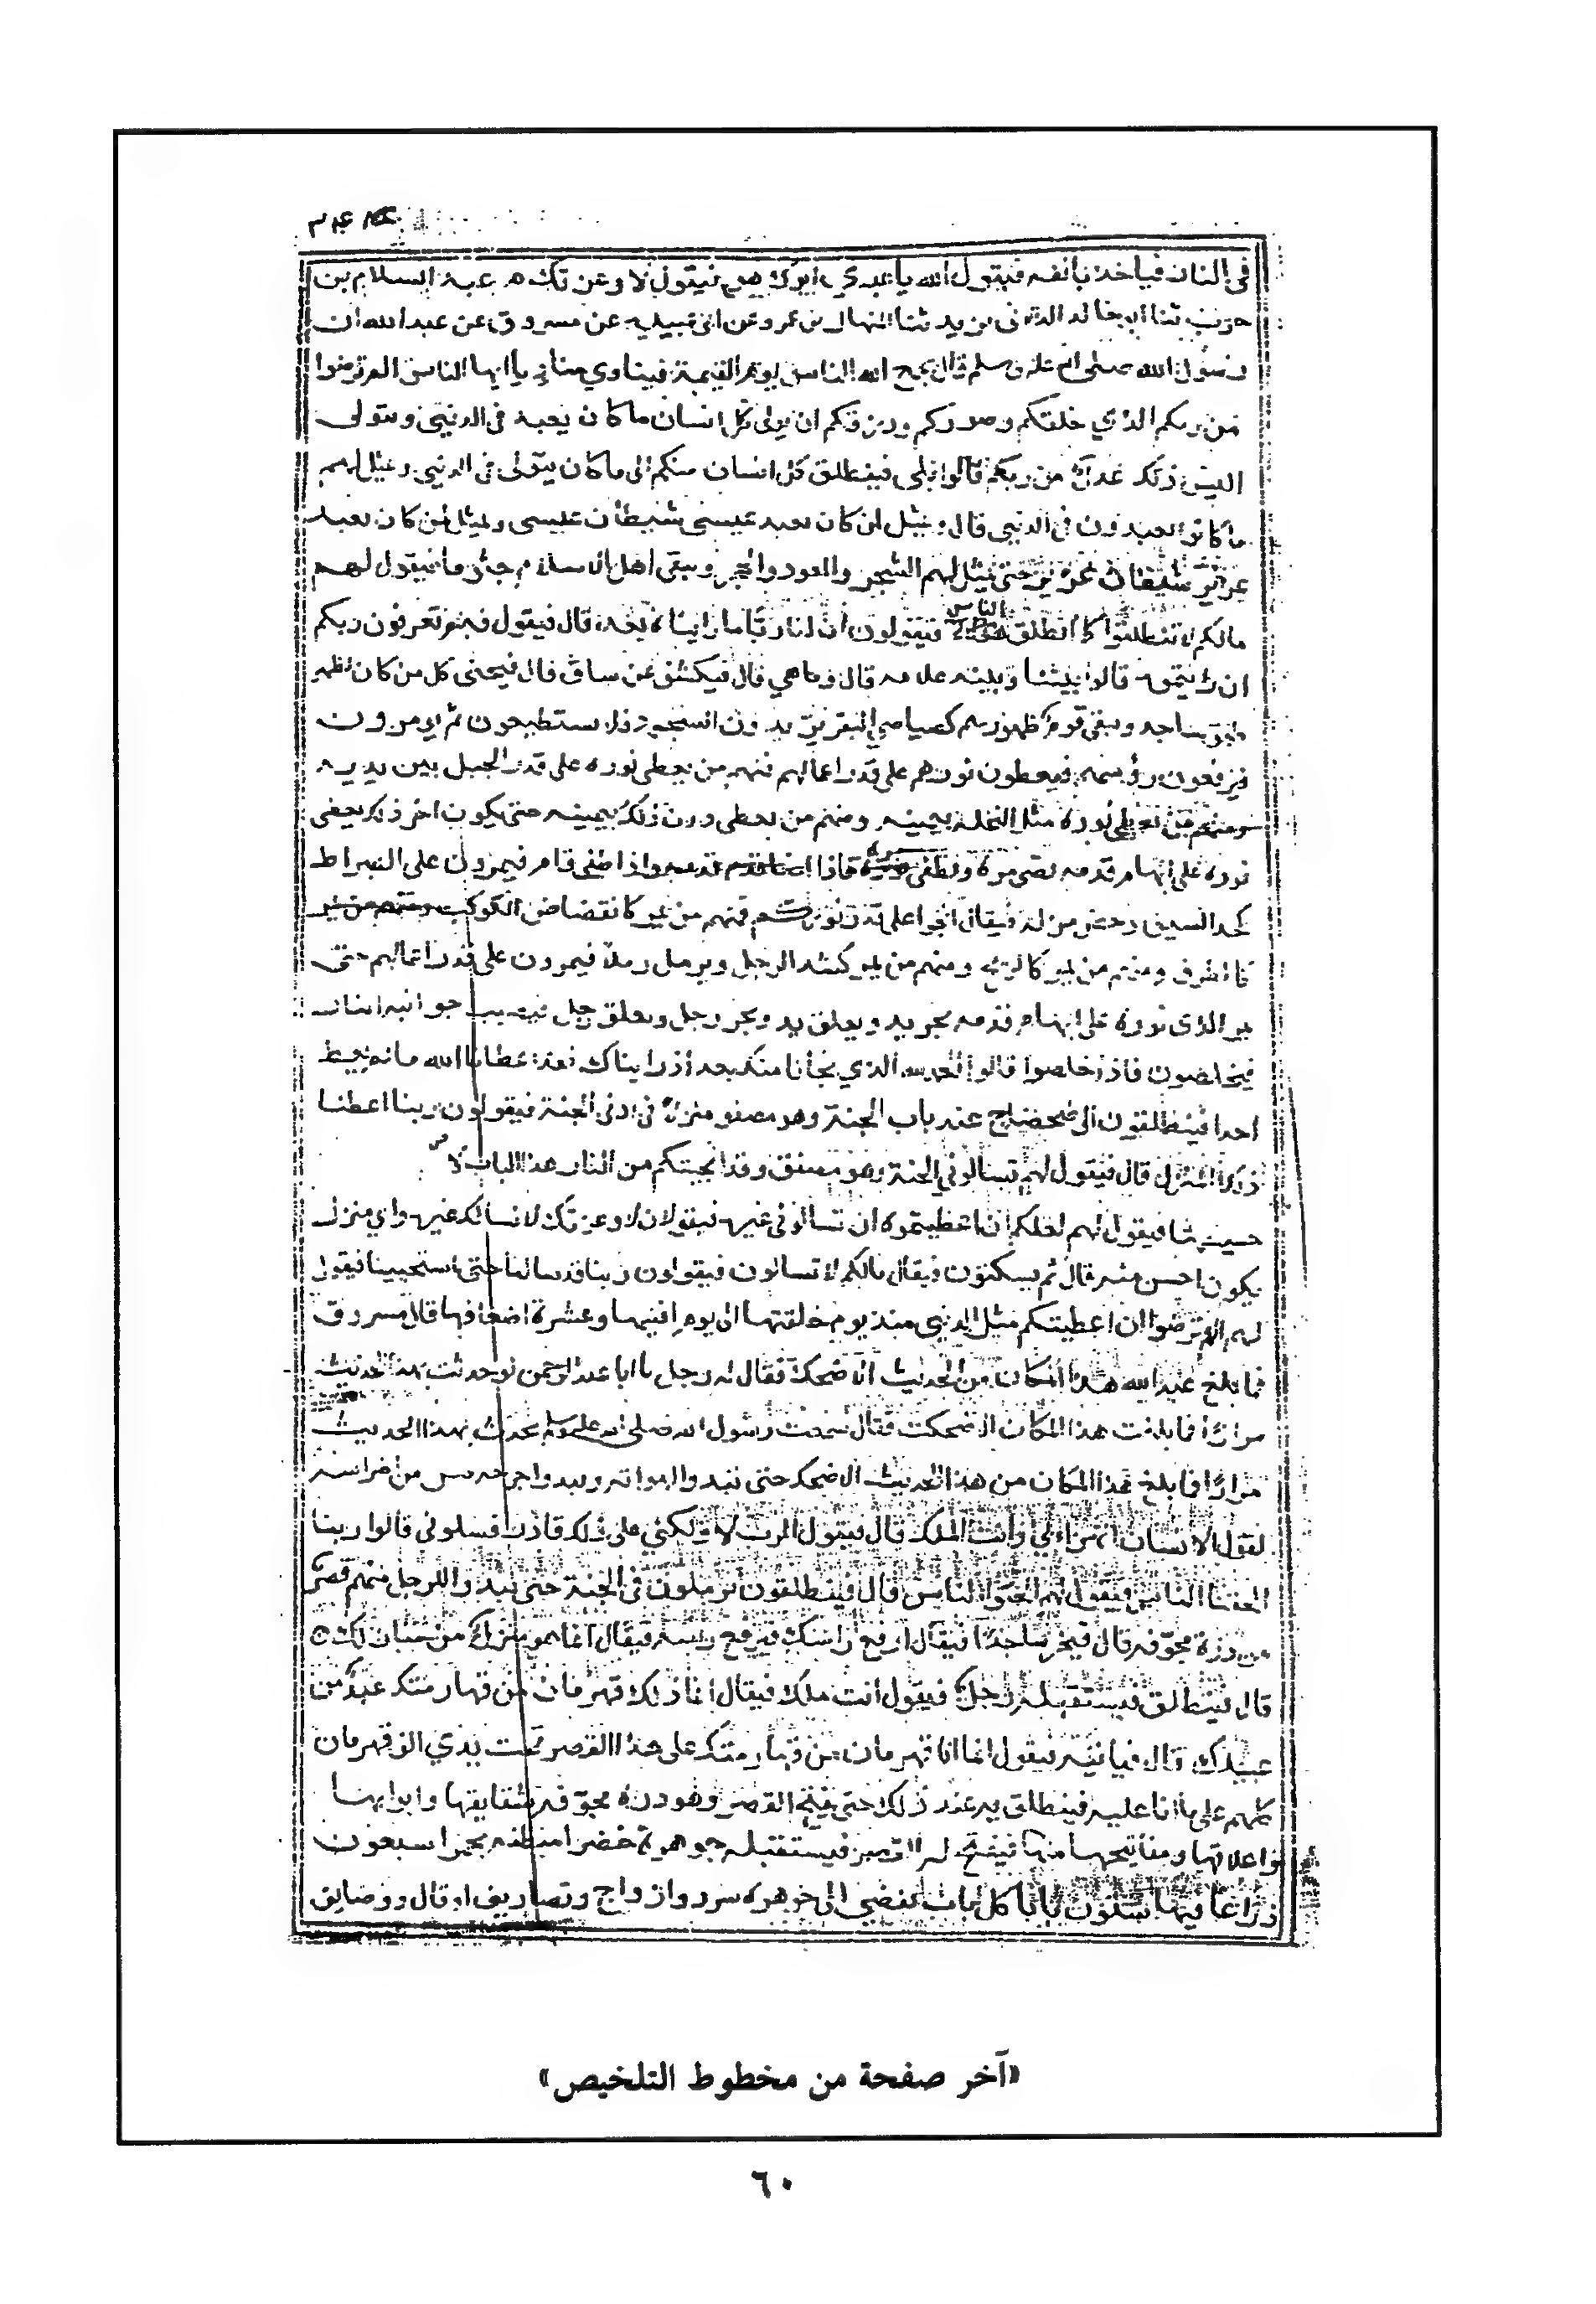 في النار فيأخذ بانفه فيقول الله يا عبدي ابوك هو فيقول لا وعزتك عبد السلام بن
حرب ثنا ابو خالد الدالاني ثنا المنهال بن عمرو عن ابي عبيدة عن مسروق عن عبد الله ان
رسول الله صلى الله عليه وسلم قال يجمع الله الناس يوم القيمة فينادي مناد يا ايها الناس الم ترضوا
من ربكم الذي خلقكم وصوركم ورزقكم ان يولى كل انسان ما كان يعبد في الدنيى ويتولى
اليس ذلك عدل من ربكم قالوا بلى فينطلق كل انسان منكم الى ما كان يتولى في الدنيى ويمثل لهم
ما كانوا يعبدون في الدنيى قال ويمثل لمن كان يعبد عيسى شيطان عيسى ويمثل لمن كان يعبد
عزير شيطان عزير حتى يمثل لهم الشجر والعود والحجر ويبقى اهل الاسلام جثوما فيقول لهم
مالكم لا تنطلقوا كما انطلق الناس فيقولون ان لنا ربا ما رايناه بعد قال فيقول فبم تعرفون ربكم
ان رايتموه قالوا بيننا وبينه علامه قال وما هي قال فيكشف عن ساق قال فيحنى كل من كان لظهر
طبق ساجد ويبقى قوم ظهورهم كصياصي البقر يريدون السجود فلا يستطيعون ثم يومرون
فيرفعون رؤسهم فيعطون نورهم على قدر اعمالهم فمنهم من يعطى نوره على قدر الجبل بين يديه
ومنهم من يعطى نوره مثل النخله بيمينه ومنهم من يعطى دون ذلك بيمينه حتى يكون اخر ذلك يعطى
نوره على ابهام قدمه يضي مرة ويطفى مرة فاذا اضا قدم قدمه واذا طفي قام فيمرون على الصراط
كحد السيف دحض مزلة فيقال انجوا على قدر نوركم فمنهم من يمر كانقضاض الكوكب ومنهم من يمر
كالطرف ومنهم من يمر كالريح ومنهم من يمر كشد الرجل ويرمل رملا فيمرون على قدر اعمالهم حتى
يمر الذي نوره على ابهام قدمه يجر يد ويعلق يد ويجر رجل ويعلق رجل فتصيب جوانبه النار
فيخلصون فاذا خلصوا قالوا الحمد لله الذي نجانا منك بعد اذ رايناك فقد اعطانا الله ما لم يعط
احدا فينطلقون الى ضحضاح عند باب الجنة وهو مصفق منزلا في ادنى الجنة فيقولون ربنا اعطنا
ذلك المنزل قال فيقول لهم تسالوني الجنة وهو مصفق وقد انجيتكم من النار هذا الباب لا
حسيسها فيقول لهم لعلكم ان اعطيتموه ان تسالوني غيره فيقولون لا وعزتك لا نسالك غيره واي منزل
يكون احسن منه قال ثم يسكتون فيقال مالكم لا تسالون فيقولون ربنا قد سالنا حتى استحيينا فيقول
لهم الم ترضوا ان اعطيتكم مثل الدنيى منذ يوم خلقتها الى يوم افنيتها وعشرة اضعافها قال مسروق
فما بلغ عبد الله هذا المكان من الحديث الا ضحك فقال له رجل يا ابا عبد الرحمن لو حدثت بهذا الحديث
مرارا فما بلغت هذا المكان الا ضحكت فقال سمعت رسول الله صلى الله عليه وسلم يحدث بهذا الحديث
مرارا فما بلغ هذا المكان من هذا الحديث الا ضحك حتى تبدو لهواته ويبدو اخر ضرس من اضراسه
لقول الانسان اتهزا بي وانت الملك قال فيقول الرب لا ولكني على ذلك قادر فسلوني قالوا ربنا
الحقنا الناس فيقول لهم الحقوا الناس قال فينطلقون يرملون في الجنة حتى يبدو للرجل منهم قصر
من درة مجوفه قال فيخر ساجدا فيقال ارفع راسك فيرفع راسه فيقال انما هو منزلك من منازلك
قال فينطلق فيستقبله رجل فيقول انت ملك فيقال انما ذلك قهرمان من قهارمتك عبد من
عبيدك قال فياتيه فيقول انما انا قهرمان من قهارمتك على هذا القصر تحت يدي الف قهرمان
كلهم على ما انا عليه فينطلق به عند ذلك حتى يفتح القصر وهو درة مجوفه سقايفها وابوابها
واغلاقها ومفاتيحها منها فيفتح له القصر فيستقبله جوهرة خضرا مبطنه بحمرا سبعون
ذراعا فيها ستون بابا كل باب يفضي الى جوهره سرر وازواج وتصاريف او قال ووصايف
«آخر صفحة من مخطوط التلخيص»
٦٠